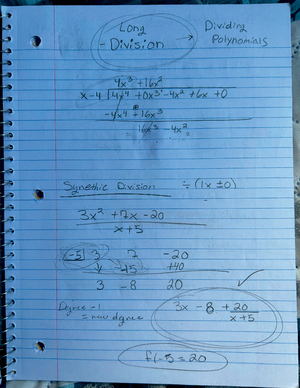 Long → Dividing
- Division Polynomials
4x³ + 16x²
x - 4 | 4x⁴ + 0x³ - 4x² + 6x + 0
- 4x⁴ + 16x³
16x³ - 4x²
Synethic Division ÷ (1x ± 0)
3x² + 7x - 20
x + 5
-5| 3 7 -20
↓ -15 +40
3 -8 20
Degree -1
= new degree
3x - 8 + 20
x + 5
f(-5 = 20